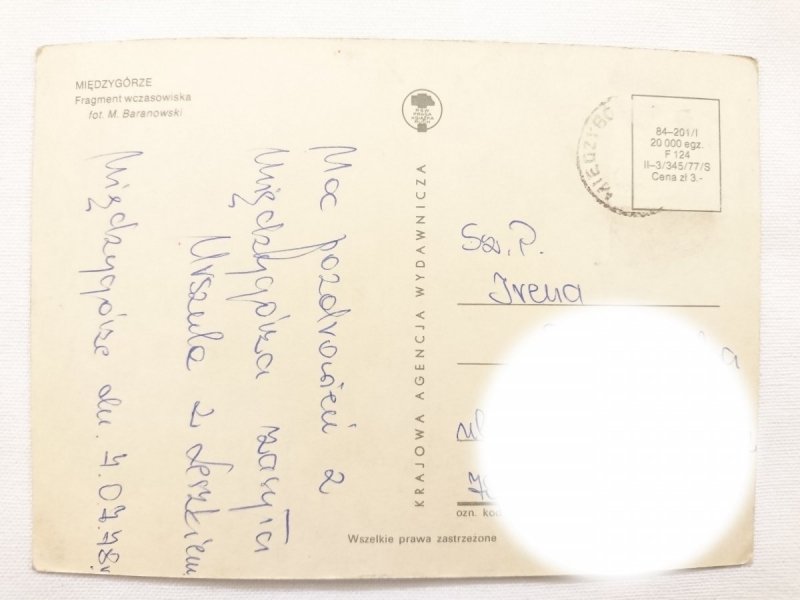 MIĘDZYGÓRZE
Fragment wczasowiska
fot. M. Baranowski
Moc pozdrowień z
Międzygórza zasyła
Urszula z Leszkiem
Międzygórze dn. 4.07.78r
KRAJOWA AGENCJA WYDAWNICZA
84-201/I
20 000 egz.
F 124
II-3/345/77/S
Cena zł 3.-
Sz. P.
Irena
ul
ozn. kod
Wszelkie prawa zastrzeżone